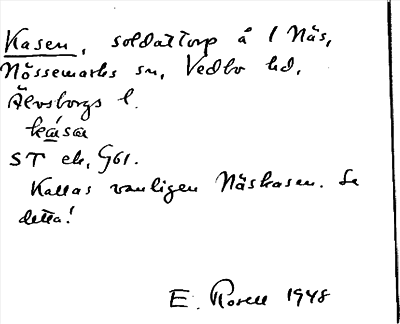 Kasen, soldattorp å 1 Näs,
Nössemarks sn, Vedbo hd,
Älvsborgs l.
ST ek, G61.
Kallas vanligen Näskasen. Se
detta!
E. Rosell 1948